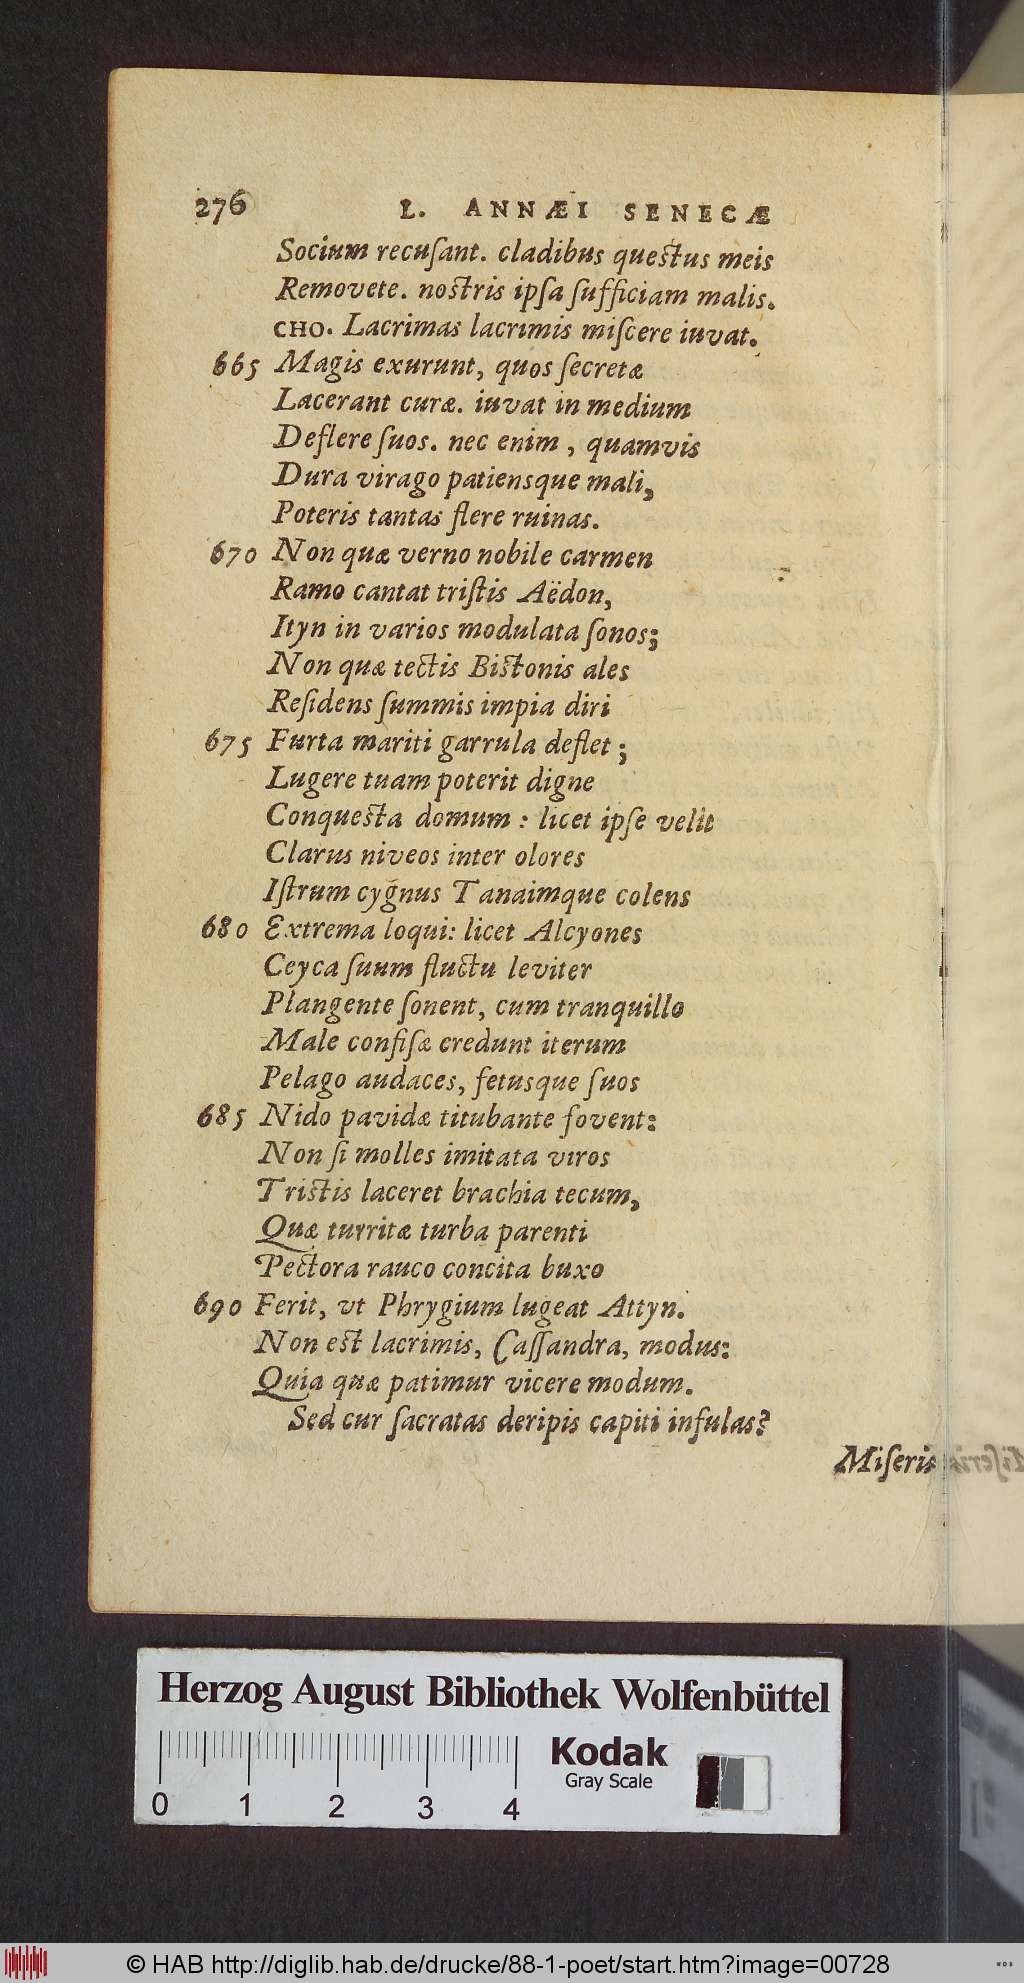 276 L. ANNÆI SENECÆ
Socium recuſant. cladibus questus meis
Removete. nostris ipſa ſufficiam malis.
CHO. Lacrimas lacrimis miſcere iuvat.
665 Magis exurunt, quos ſecretæ
Lacerant curæ. iuvat in medium
Deflere ſuos. nec enim, quamvis
Dura virago patiensque mali,
Poteris tantas flere ruinas.
670 Non quæ verno nobile carmen
Ramo cantat triſtis Aëdon,
Ityn in varios modulata ſonos;
Non quæ tectis Bistonis ales
Reſidens ſummis impia diri
675 Furta mariti garrula deflet;
Lugere tuam poterit digne
Conquesta domum: licet ipſe velit
Clarus niveos inter olores
Iſtrum cygnus Tanaimque colens
680 Extrema loqui: licet Alcyones
Ceyca ſuum fluctu leviter
Plangente ſonent, cum tranquillo
Male confiſæ credunt iterum
Pelago audaces, fetusque ſuos
685 Nido pavidæ titubante fovent:
Non ſi molles imitata viros
Tristis laceret brachia tecum,
Quæ turritæ turba parenti
Pectora rauco concita buxo
690 Ferit, vt Phrygium lugeat Attyn.
Non est lacrimis, Caſſandra, modus:
Quia quæ patimur vicere modum.
Sed cur ſacratas deripis capiti infulas?
Miſeris
Herzog August Bibliothek Wolfenbüttel
Kodak
Gray Scale
0 1 2 3 4
© HAB http://diglib.hab.de/drucke/88-1-poet/start.htm?image=00728